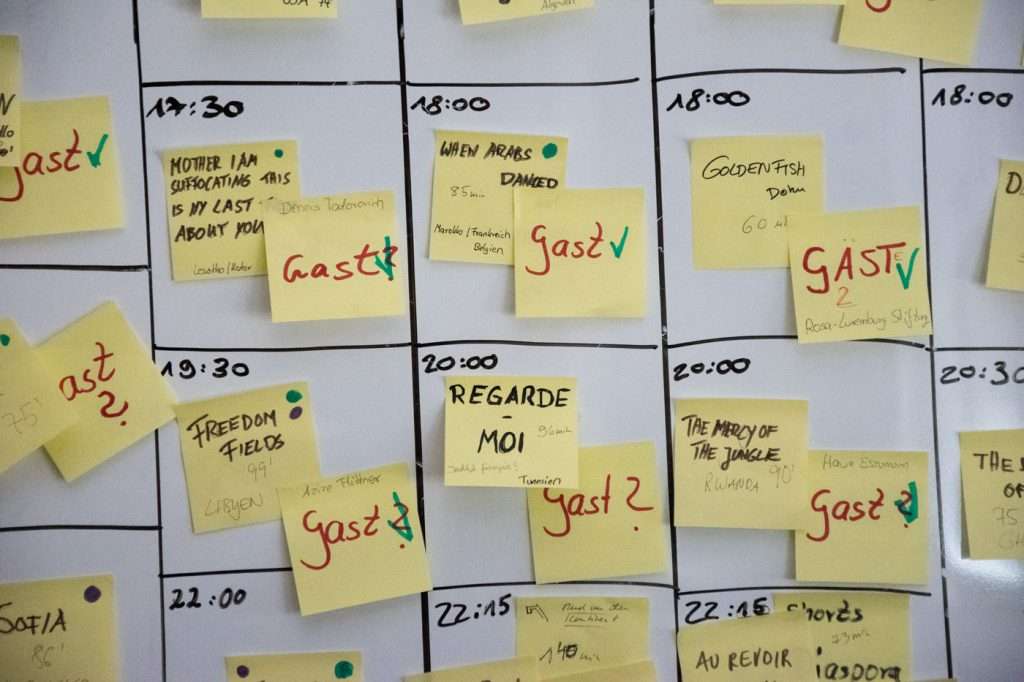 17:30
18:00
18:00
18:00
Gast
MOTHER I AM
SUFFOCATING THIS
IS MY LAST
ABOUT YOU
Lesotho/
Gast?
WHEN ARABS
DANCED
85 min
Marokko/Frankreich
Belgien
Gast
GOLDENFISH
Dohn
60
GÄSTE
2
Rosa-Luxemburg Stiftung
19:30
20:00
20:00
20:30
ast
?
75'
FREEDOM
FIELDS
99'
LIBYEN
Gast?
REGARDE
-
MOI
96 min
Tunesien
Gast?
THE MERCY OF
THE JUNGLE
RWANDA 90'
Gast?
THE
OF
75
22:00
22:15
22:15
SOFIA
86'
140 min
Shorts
73 min
AU REVOIR
iaspora